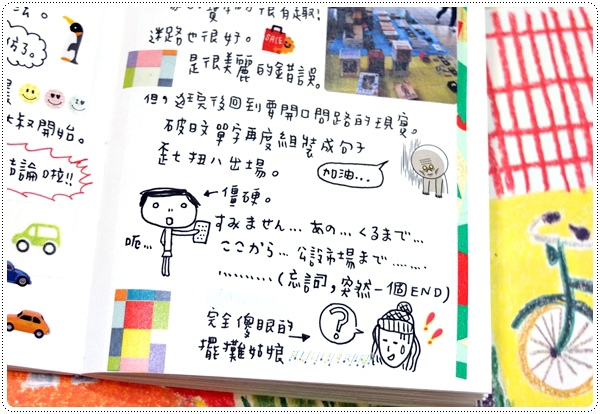 很有趣!
迷路也很好。
SALE
是很美麗的錯誤。
但,逛完後回到要開口問路的現實。
破日文單字再度組裝成句子
歪七扭八出場。
加油...
僵硬。
呃...
すみません... あの... くるまで...
ここから... 公設市場まで......
..........(忘詞,突然一個END)
完全傻眼的
擺攤姑娘
?
!!
開始。
結論啦!!